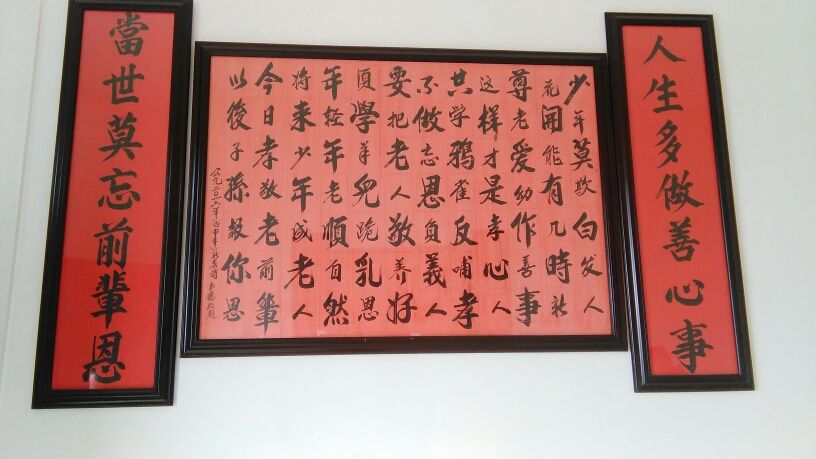 人生多做善心事
少年莫欺白发人
花開能有几時新
尊老爱幼作善事
这样才是孝心人
共学鴉雀反哺孝
不做忘恩負義人
要把老人敬养好
須學羊兒跪乳恩
年轻年老順自然
将来少年成老人
今日孝敬老前輩
以後子孫報你恩
公元二〇一六年
當世莫忘前輩恩